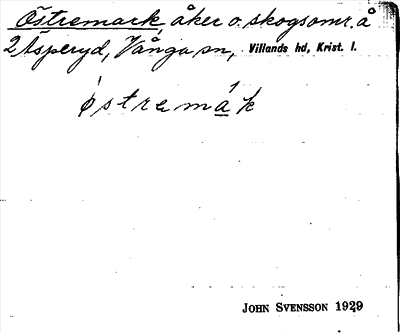 Östremark, åker o. skogsomr. å
2 Åsperyd, Vånga sn, Villands hd, Krist. l.
østremàk
JOHN SVENSSON 1929